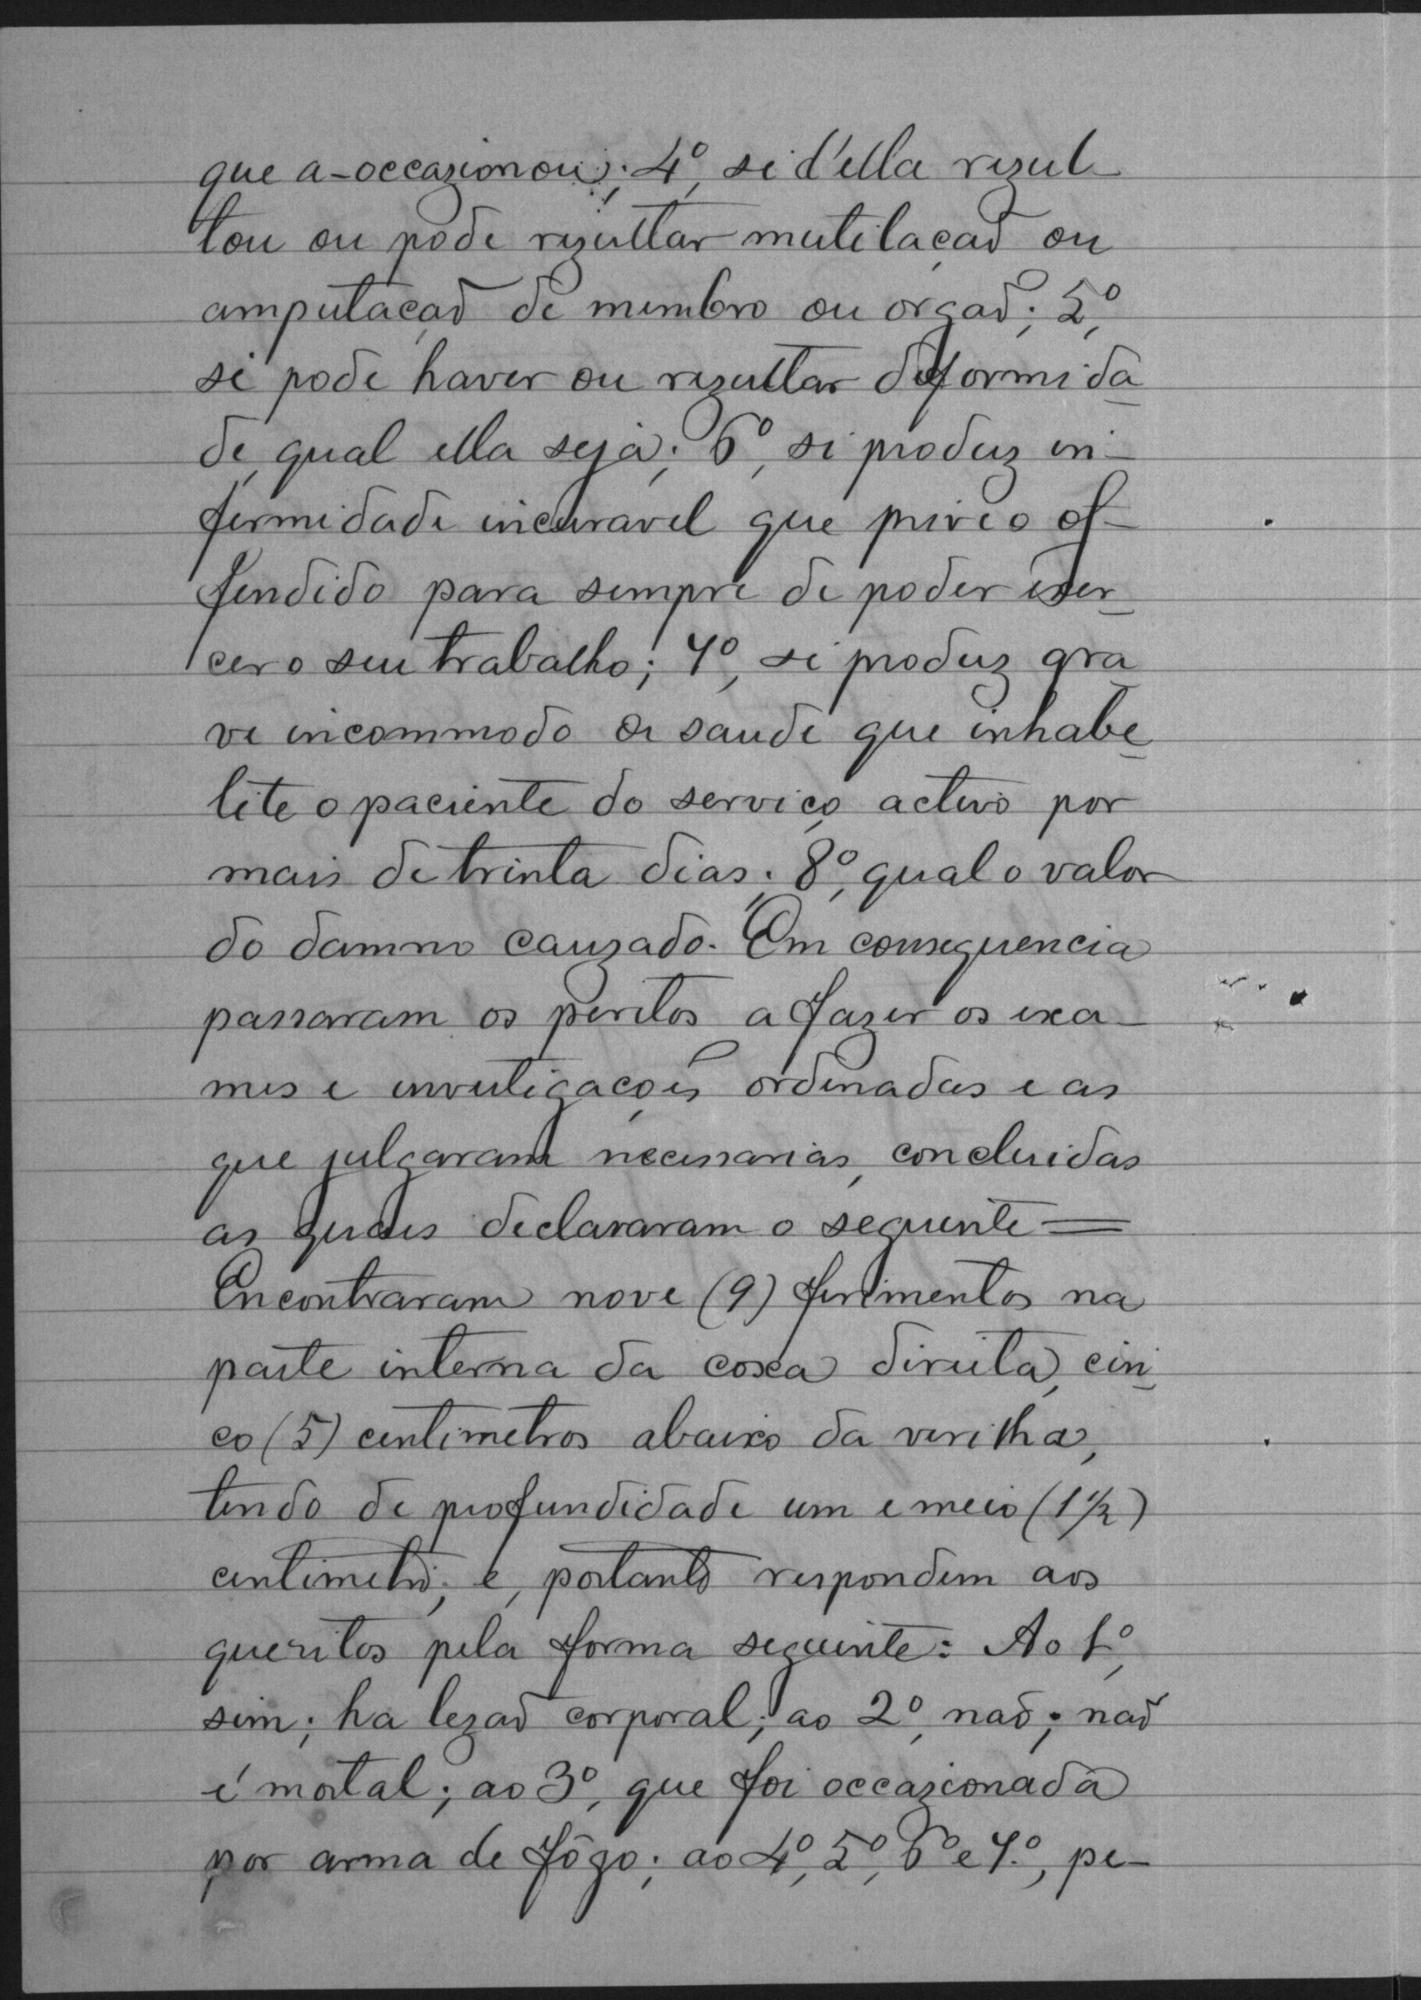 que a-occazionou; 4º, si d'ella rezul-
tou ou pode rezultar mutilaçaõ ou
amputaçaõ de membro ou orgaõ; 5º,
si pode haver ou rezultar deformida
de, qual ella seja; 6º, si produz in-
fermidade incuravel que prive o of-
fendido para sempre de poder exer-
cer o seu trabalho; 7º, si produz gra
ve incommodo de saude que inhabe
lite o paciente do serviço activo por
mais de trinta dias; 8º, qual o valor
do damno cauzado. Em consequencia
passaram os peritos a fazer os exa-
mes e investigações ordenadas e as
que julgaram necessarias, concluidas
as quaes declararam o seguinte =
Encontraram nove (9) ferimentos na
parte interna da coxa direita, cin-
co (5) centimetros abaixo da verilha,
tendo de profundidade um e meio (1 1/2)
centimetro; e, portanto respondem aos
quesitos pela forma seguinte: Ao 1º,
sim; ha lezaõ corporal; ao 2º, naõ; naõ
é mortal; ao 3º, que foi occazionada
por arma de fôgo; ao 4º, 5º, 6º e 7.º, pe-